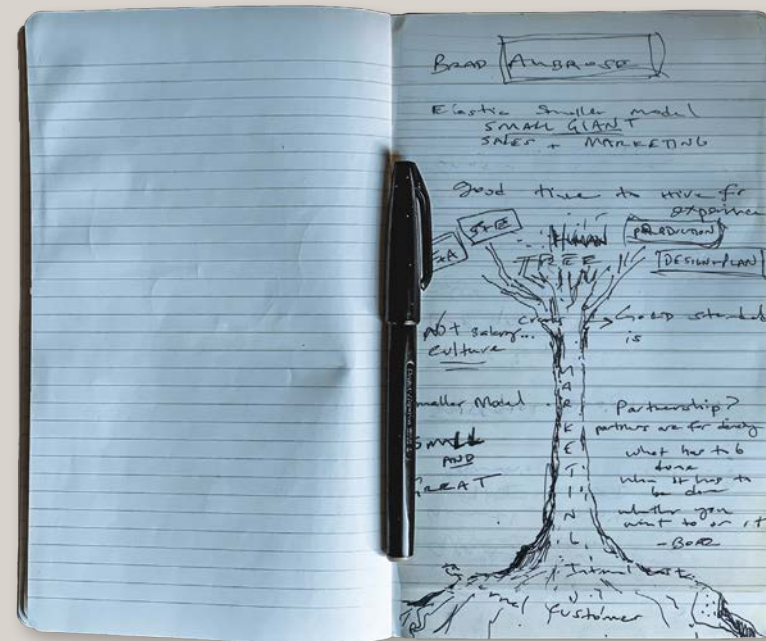 BRAD AMBROSE
Elastic Smaller model
SMALL GIANT
SALES + MARKETING
good time to hire for
experience
HUMAN
TREE
DESIGN+PLAN
Not salary...
culture
GOLD standard
is
Smaller Model
SMALL
AND
GREAT
MARKETIN
Partnership?
partners are for doing
what has to b
done
when it has to
be done
whether you
want to or
customer